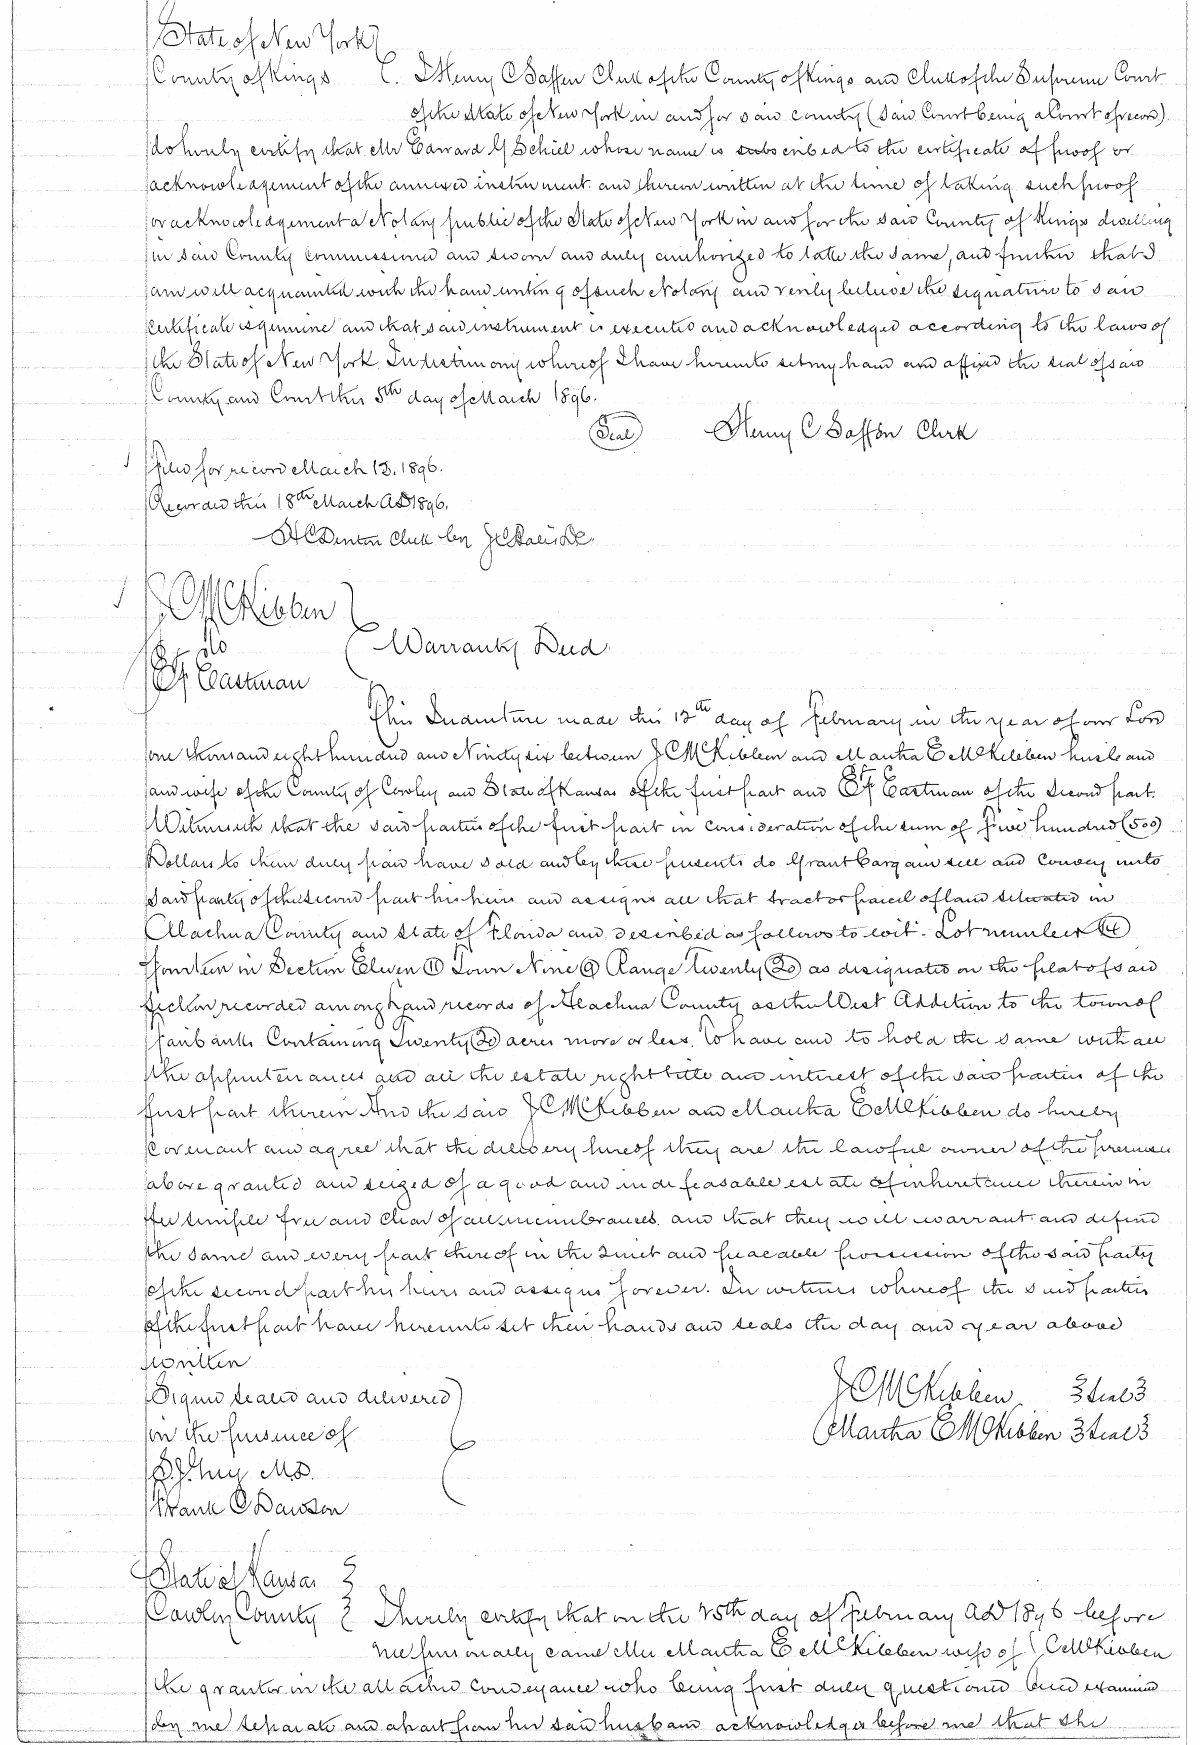 State of New York
County of Kings I Henry C Saffen Clerk of the County of Kings and Clerk of the Supreme Court
of the State of New York in and for said county (said Court being a Court of record)
do hereby certify that Mr Edward G Schiel whose name is subscribed to the certificate of proof or
acknowledgement of the annexed instrument and thereon written at the time of taking such proof
or acknowledgement a Notary public of the State of New York in and for the said County of Kings dwelling
in said County commissioned and sworn and duly authorized to take the same, and further that I
am well acquainted with the hand writing of such Notary and verily believe the signature to said
certificate is genuine and that said instrument is executed and acknowledged according to the laws of
the State of New York In testimony whereof I have hereunto set my hand and affixed the seal of said
County and Court this 5th day of March 1896.
Seal Henry C Saffen Clerk
Filed for record March 13, 1896.
Recorded this 18th March AD 1896.
H C Denton Clerk by
J C McKibben
to Warranty Deed
E F Eastman
This Indenture made this 12th day of February in the year of our Lord
one thousand eight hundred and Ninety six between J C McKibben and Martha E McKibben husband
and wife of the County of Cowley and State of Kansas of the first part and E F Eastman of the second part.
Witnesseth that the said parties of the first part in consideration of the sum of five hundred (500)
Dollars to them duly paid have sold and by these presents do Grant bargain sell and Convey unto
said party of the second part his heirs and assigns all that tract or parcel of land situated in
Alachua County and State of Florida and described as follows to wit. Lot number (14)
fourteen in Section Eleven (11) Town Nine (9) Range Twenty (20) as designated on the plat of said
section recorded among land records of Alachua County as the West Addition to the town of
Fairbanks Containing Twenty (20) acres more or less. To have and to hold the same with all
the appurtenances and all the estate right title and interest of the said parties of the
first part therein And the said J C McKibben and Martha E McKibben do hereby
covenant and agree that the delivery hereof they are the lawful owner of the premises
above granted and seized of a good and indefeasable estate of inheretance therein in
fee simple free and clear of all incumbrances. and that they will warrant and defend
the same and every part thereof in the Quiet and peaceable possession of the said party
of the second part his heirs and assigns forever. In witness whereof the said parties
of the first part have hereunto set their hands and seals the day and year above
written
Signed sealed and delivered J C McKibben Seal
in the presence of Martha E McKibben Seal
M.D.
Frank C Dawson
State of Kansas
Cowley County I hereby certify that on the 25th day of February AD 1896 before
me personally came Mrs Martha E McKibben wife of J C McKibben
the grantor in the attached conveyance who being first duly questioned and examined
by me separate and apart from her said husband acknowledges before me that she